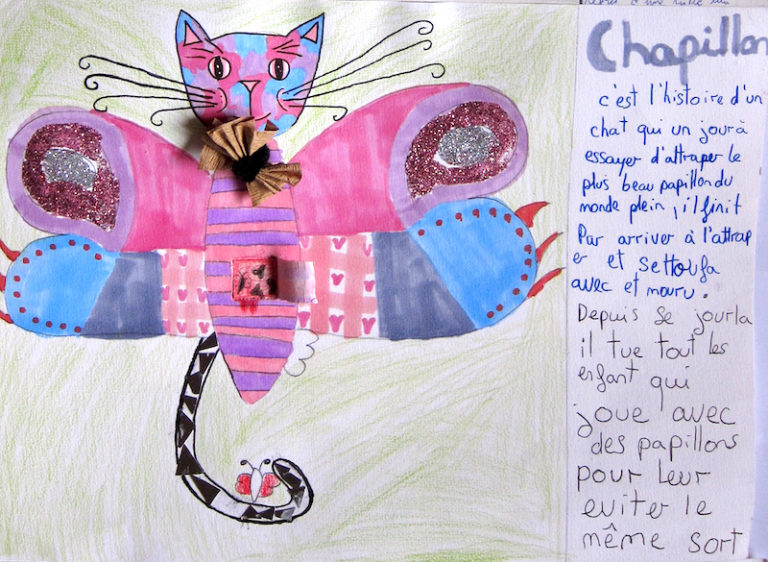 Chapillon
c'est l'histoire d'un
chat qui un jour à
essayer d'attraper le
plus beau papillon du
monde plein, il finit
Par arriver à l'attrap
er et settoufa
avec et mouru.
Depuis se jour la
il tue tout les
enfant qui
joue avec
des papillons
pour leur
eviter le
même sort